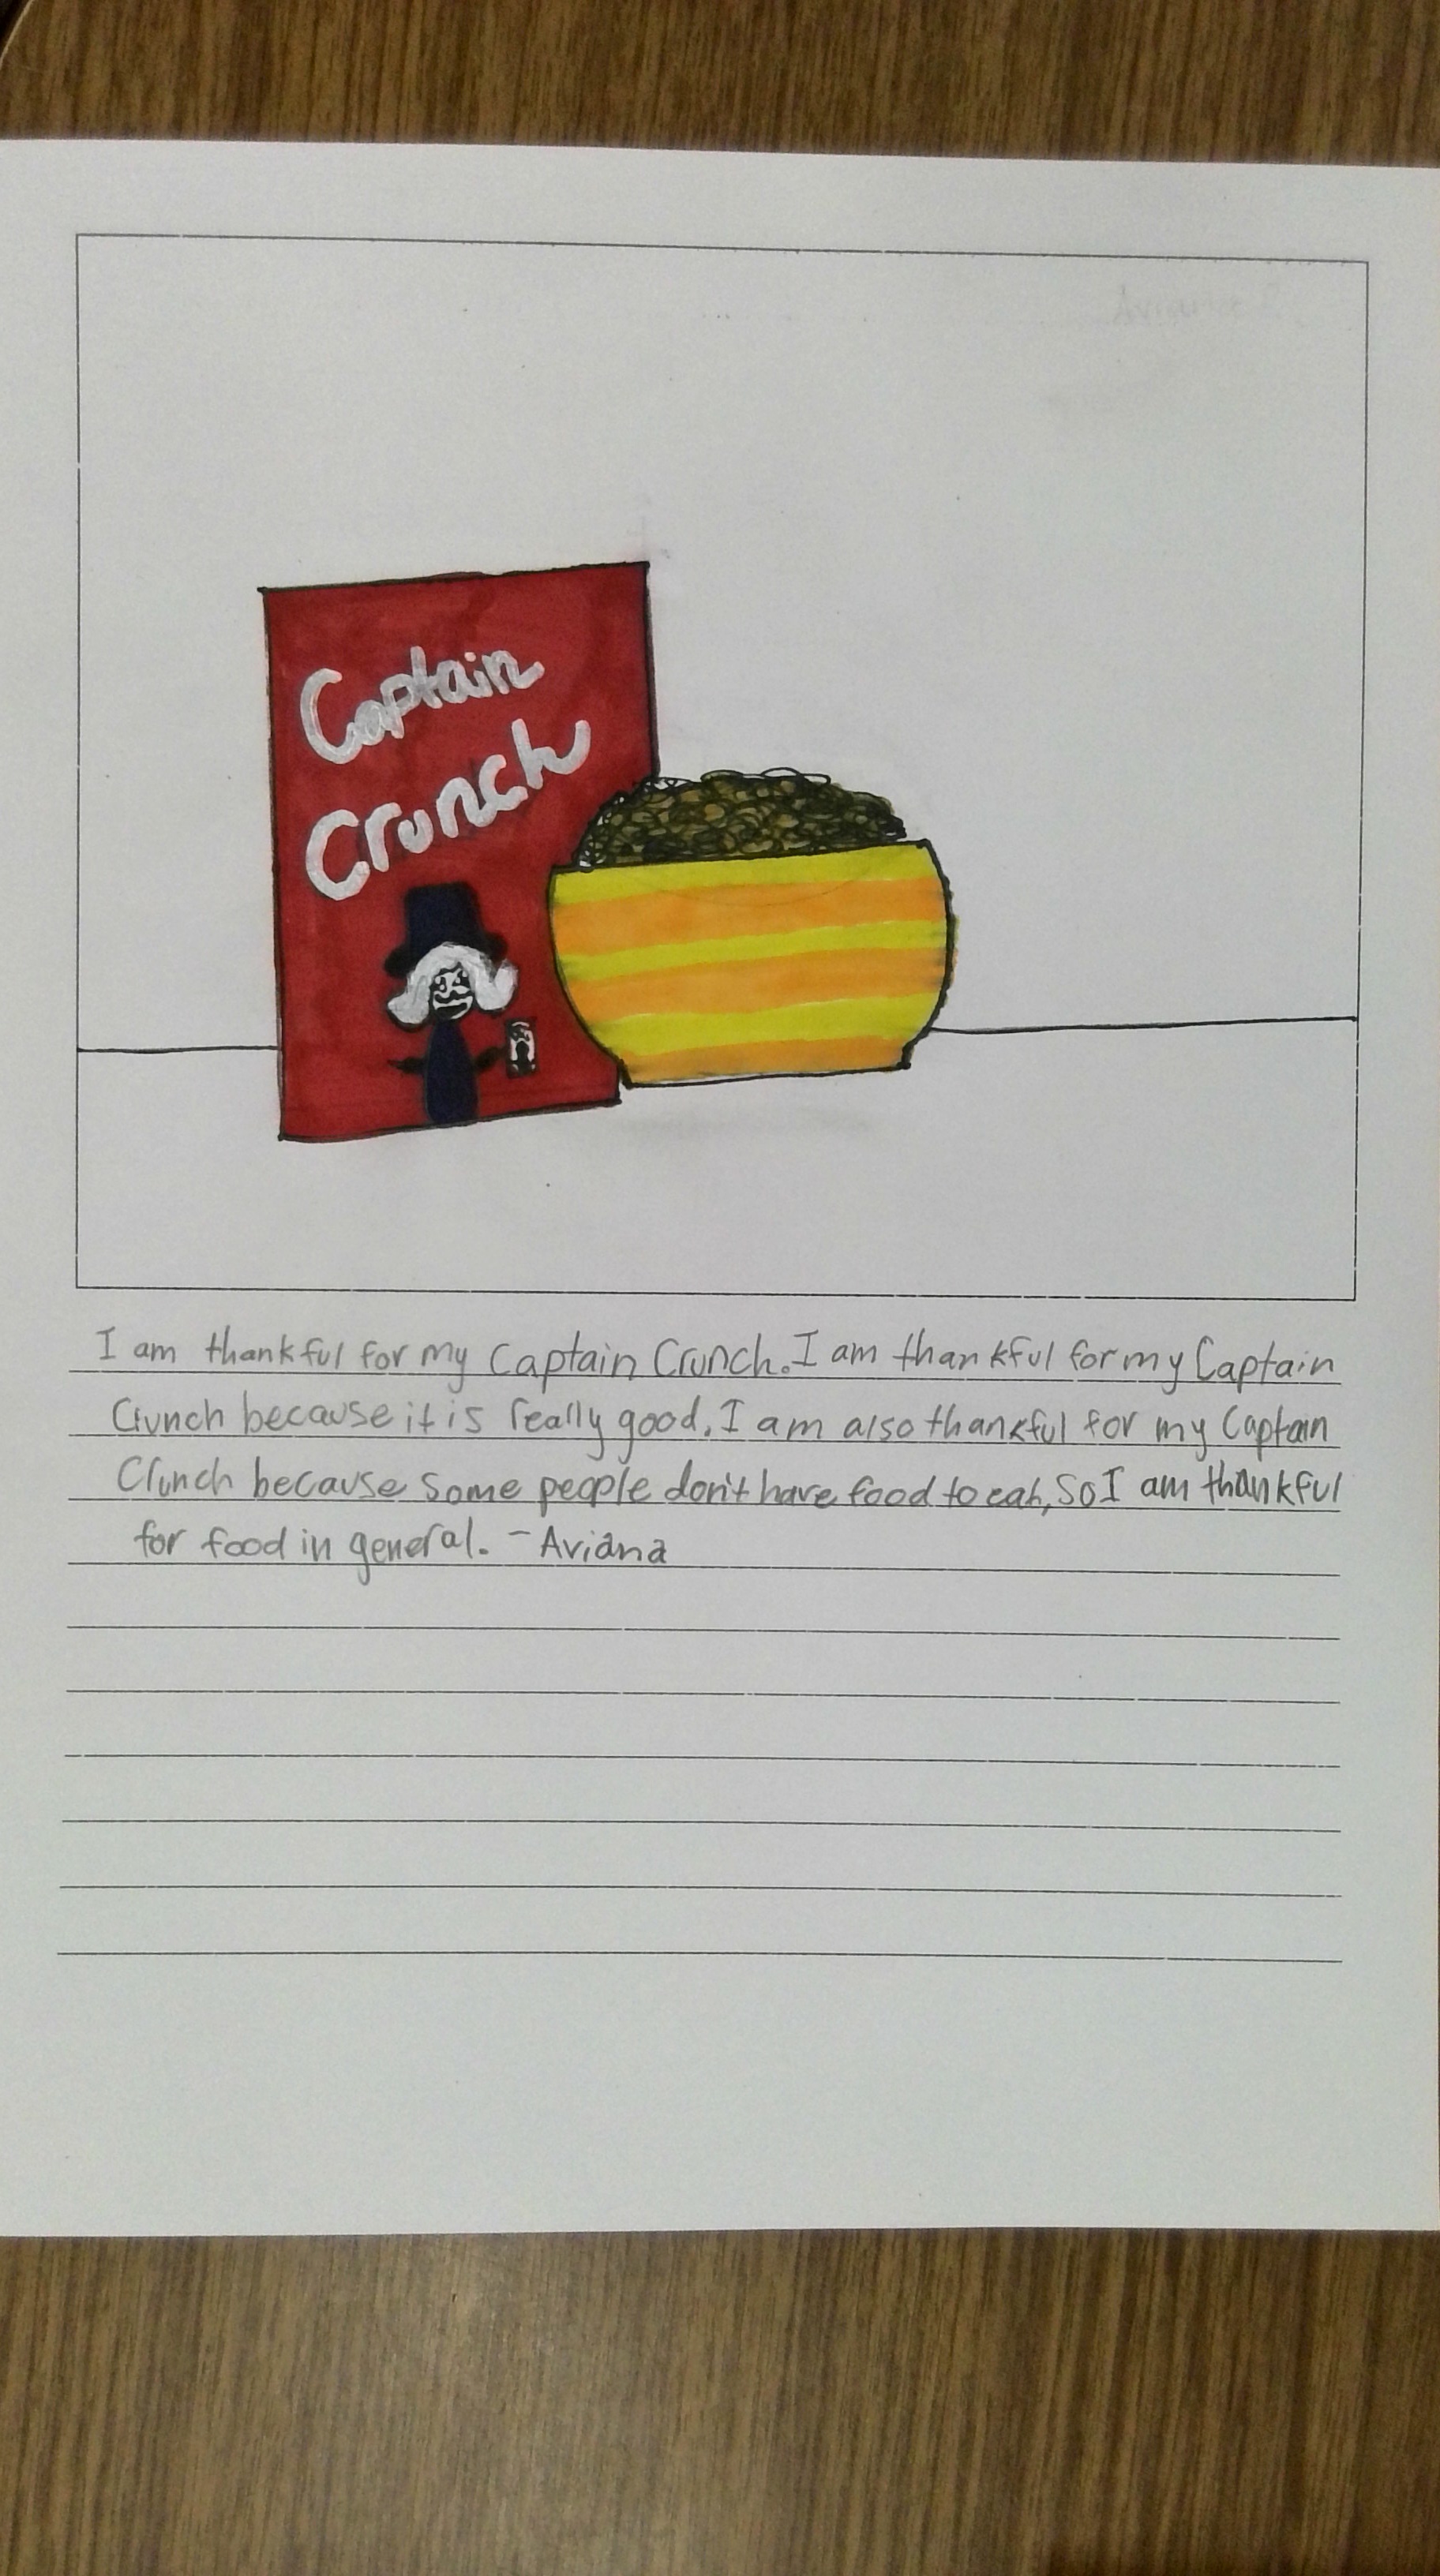 Captain
Crunch
I am thankful for my Captain Crunch. I am thankful for my Captain
Crunch because it is really good. I am also thankful for my Captain
Crunch because some people don't have food to eat, So I am thankful
for food in general. - Aviana